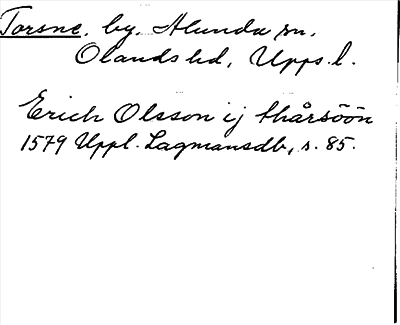 Torsne. by. Alunda sn.
Olands hd, Upps. l.
Erich Olsson ij thårsöön
1579 Uppl. Lagmansdb, s. 85.